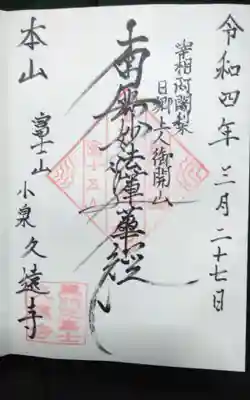 令和四年三月二十七日
宰相阿闍梨
日郷上人御開山
南無妙法蓮華経
本山
富士山
小泉久遠寺